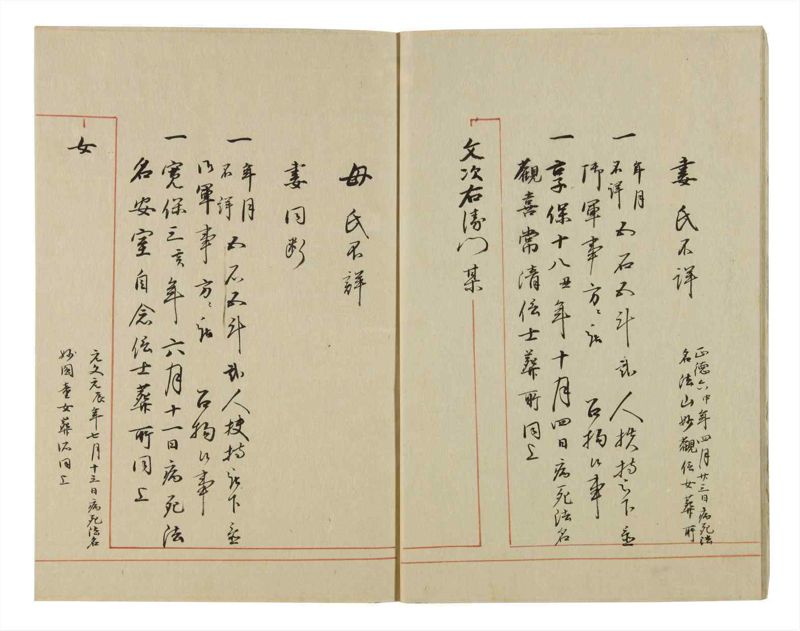 妻氏不詳
正德六申年四月廿三日病死法
名法山妙觀信女葬所
一年月不詳五石五斗弐人扶持被下置
御軍事方被召拘候事
一享保十八丑年十月四日病死法名
觀喜常清信士葬所同上
文次右衛門某
母氏不詳
妻同断
一年月不詳五石五斗弐人扶持被下置
御軍事方被召拘候事
一寛保三亥年六月十一日病死法
名安室自念信士葬所同上
女
元文元辰年七月十三日病死法名
妙國童女葬所同上